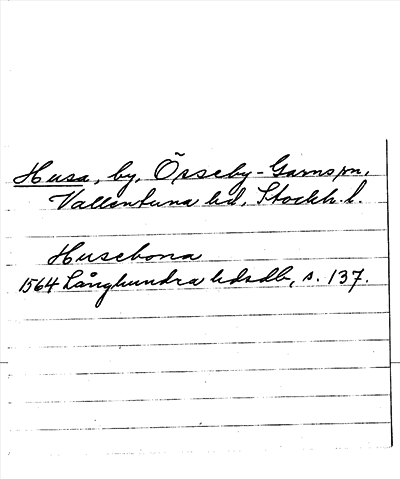 Husa, by, Örseby-Garns sn,
Vallentuna hd, Stockh. l.
Husebona
1564 Långhundra hdsdb, s. 137.